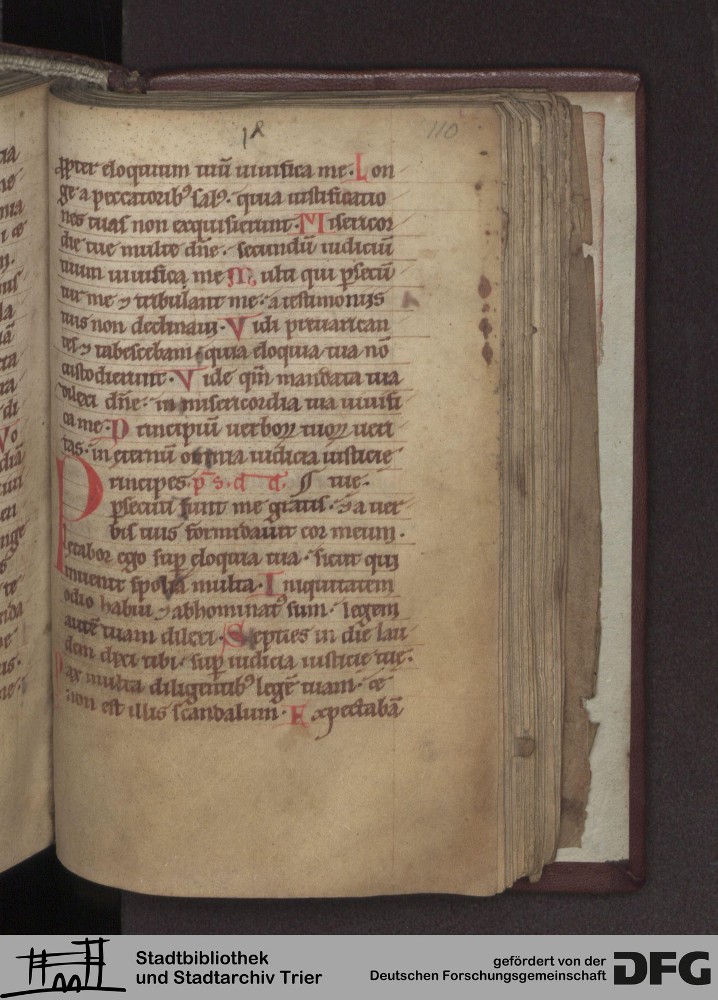 110
propter eloquium tuū uiuifica me. Lon
ge a peccatorib⁹ sal⁹. quia iustificatio
nes tuas non exquisierunt. Misericor
die tue multe dn̄e. secundū iudiciū
tuum uiuifica me. Multi qui ꝑsecū
tur me ⁊ tribulant me. a testimoniis
tuis non declinaui. Vidi preuarican
tes ⁊ tabescebam. quia eloquia tua nō
custodierunt. Vide qm̄ mandata tua
dilexi dn̄e. in misericordia tua uiuifi
ca me. Principiū uerboꝝ tuoꝝ ueri
tas. in eternū omnia iudicia iusticie
Principes tue.
ꝑsecuti sunt me gratis. ⁊ a uer
bis tuis formidauit cor meum.
Letabor ego suꝑ eloquia tua. sicut qui
inuenit spolia multa. Iniquitatem
odio habui ⁊ abhominat⁹ sum. legem
autē tuam dilexi. Septies in die lau
dem dixi tibi. suꝑ iudicia iusticie tue.
Pax multa diligentib⁹ legē tuam. ⁊
non est illis scandalum. Expectabā
Stadtbibliothek
und Stadtarchiv Trier
gefördert von der
Deutschen Forschungsgemeinschaft DFG